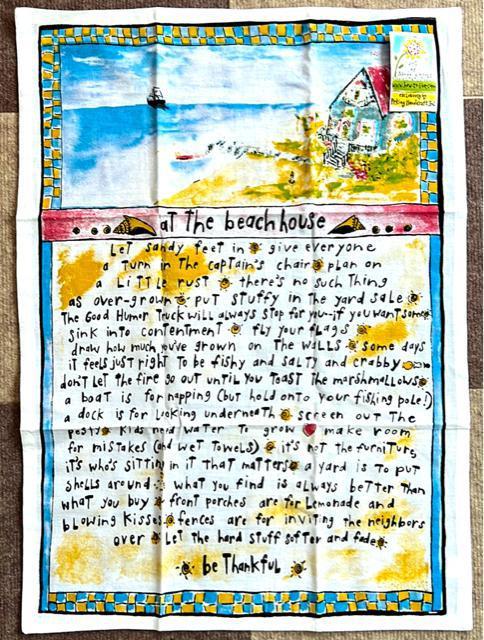 at The beach house
Let sandy feet in give everyone
a Turn in The captain's chair plan on
a LiTTLe rust there's no such Thing
as over-grown put Stuffy in the yard sale
The Good Humor Truck will always stop for you-if you want some
sink into contentment fly your flags
draw how much you've grown on The walls some days
it feels just right To be fishy and salty and crabby
don't let the fire go out until you Toast The marshmallows
a boat is for napping (but hold onto your fishing pole!)
a dock is for Looking underneath screen out The
pests Kids need water To grow make room
for mistakes (and wet Towels) it's not the furniture,
it's who's sitting in it that matters a yard is to put
shells around what you find is always better Than
what you buy front porches are for Lemonade and
blowing Kisses fences are for inviting the neighbors
over Let the hard stuff soften and fade
be Thankful